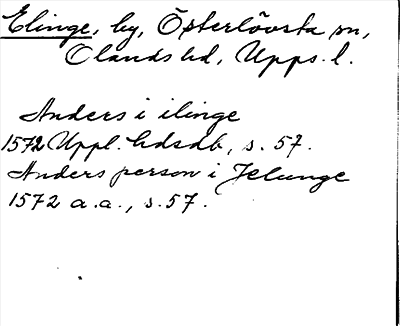 Elinge, by, Österlövsta sn,
Olands hd, Upps. l.
Anders i ilinge
1572 Uppl. hdsdb, s. 57.
Anders person i Jelunge
1572 a.a., s. 57.